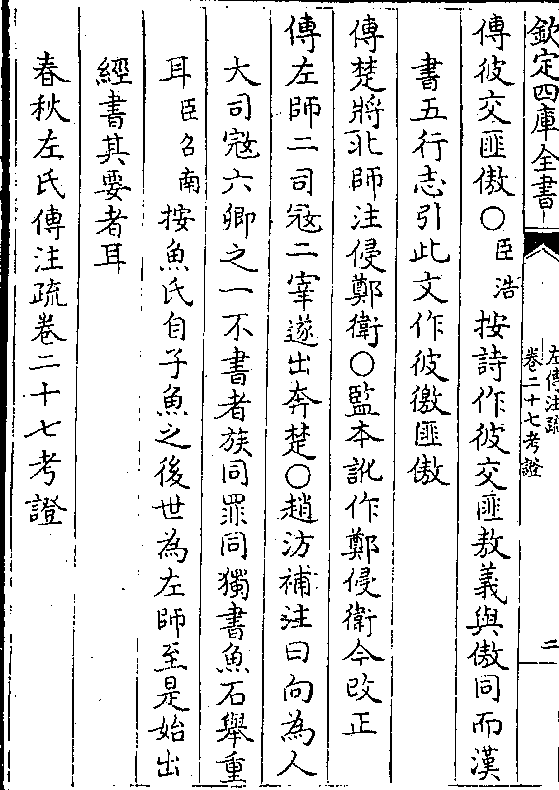 欽定四庫全書
左傳注疏
卷二十七考證
二
傳彼交匪傲○臣浩按詩作彼交匪敖義與傲同而漢
書五行志引此文作彼徼匪傲
傳楚將北師注侵鄭衛○監本訛作鄭侵衛今改正
傳左師二司寇二宰遂出奔楚○趙汸補注曰向為人
大司寇六卿之一不書者族同罪同獨書魚石舉重
耳臣召南按魚氏自子魚之後世為左師至是始出
經書其要者耳
春秋左氏傳注疏卷二十七考證